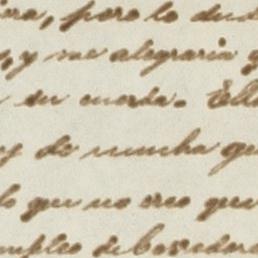 ira, pero lo dud
, y me alegraria q
su cuerda. Ella
y de mucha gu
lo que no creo que
mpleo de Bordador